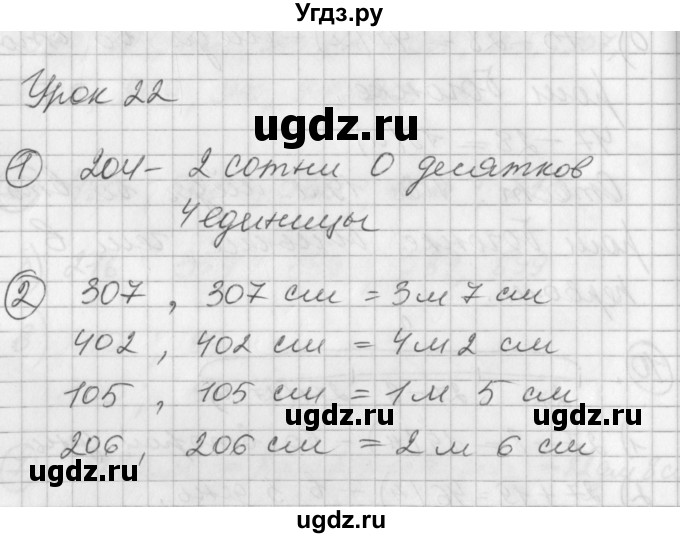 Угдз.ру
Урок 22
ugdz.ru
① 204 - 2 сотни 0 десятков
4 единицы
ugdz.ru
② 307 , 307 см = 3 м 7 см
402 , 402 см = 4 м 2 см
105 , 105 см = 1 м 5 см
ugdz.ru ugdz.ru
206, 206 см = 2 м 6 см
ugdz.ru
ugdz.ru